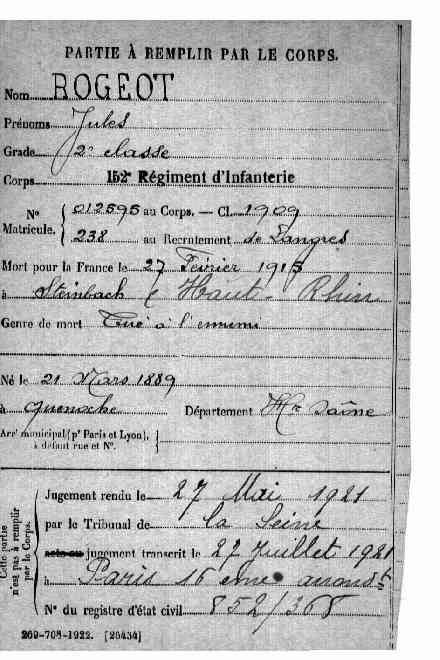 PARTIE À REMPLIR PAR LE CORPS.
Nom ROGEOT
Prénoms Jules
Grade 2e classe
Corps 152e Régiment d'Infanterie
N° Matricule. { 012595 au Corps. — Cl. 1909
238 au Recrutement de Langres
Mort pour la France le 27 Février 1915
à Steinbach ( Haute-Rhin
Genre de mort Tué à l'ennemi
Né le 21 Mars 1889
à Département Hte Saône
Arrt municipal (pr Paris et Lyon),
à défaut rue et N°.
Cette partie n'est pas à remplir par le Corps.
Jugement rendu le 27 Mai 1921
par le Tribunal de la Seine
acte ou jugement transcrit le 27 Juillet 1921
à Paris 16 eme arrondt
N° du registre d'état civil 852/368
269-708-1922. [26434]